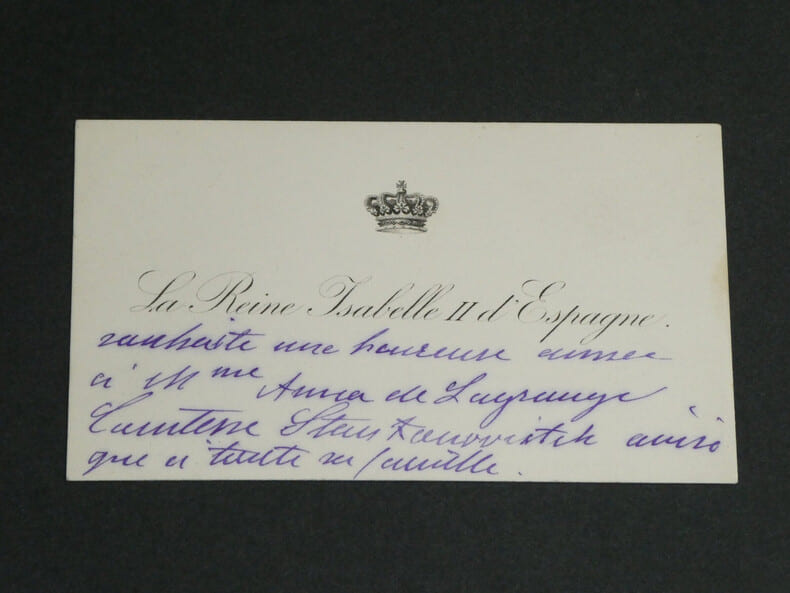 La Reine Isabelle II d'Espagne.
souhaite une heureuse année
à Mme Anna de Lagrange
Comtesse Stankowitch ainsi
que à toute sa famille.